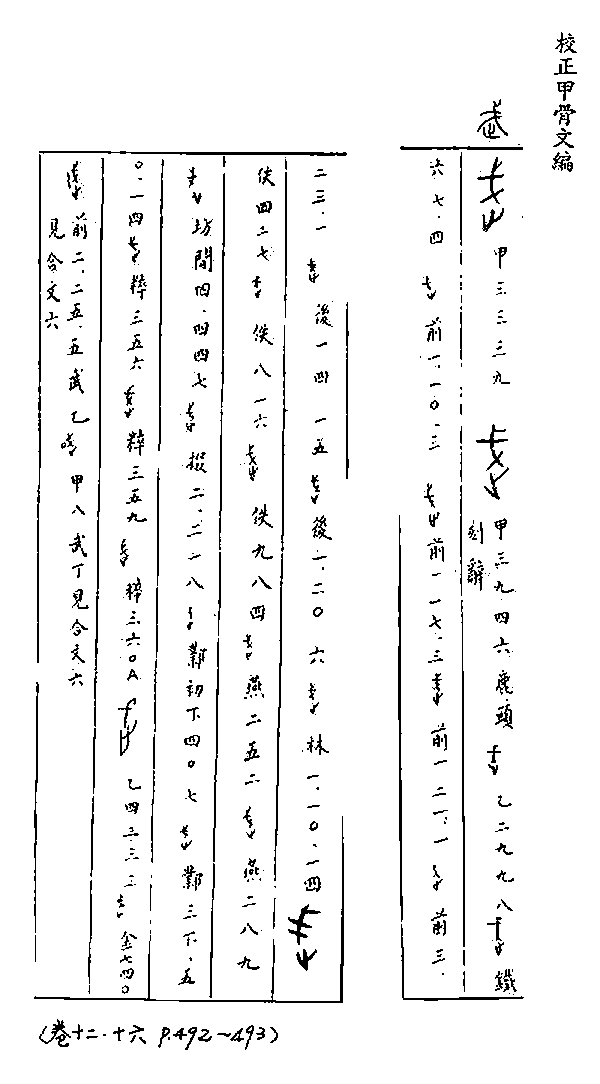 校正甲骨文編
武
甲三三三九 甲三九四六鹿頭刻辭 乙二九九八 鐵
六七.四 前一.一〇.三 前一一七.三 前一二一.一 前三.
二三.一 後一四一五 後一.二〇六 林一.一〇.一四
佚四二七 佚八一六 佚九八四 燕二五二 燕二八九
坊間四.四四七 掇二.二一八 鄴初下四〇七 鄴三下.五
〇.一四 粹三五六 粹三五九 粹三.六〇A 乙四三三三 金七四〇
前二.二五.五武乙見合文六 甲八武丁見合文六
(卷十二.十六 P.492~493)